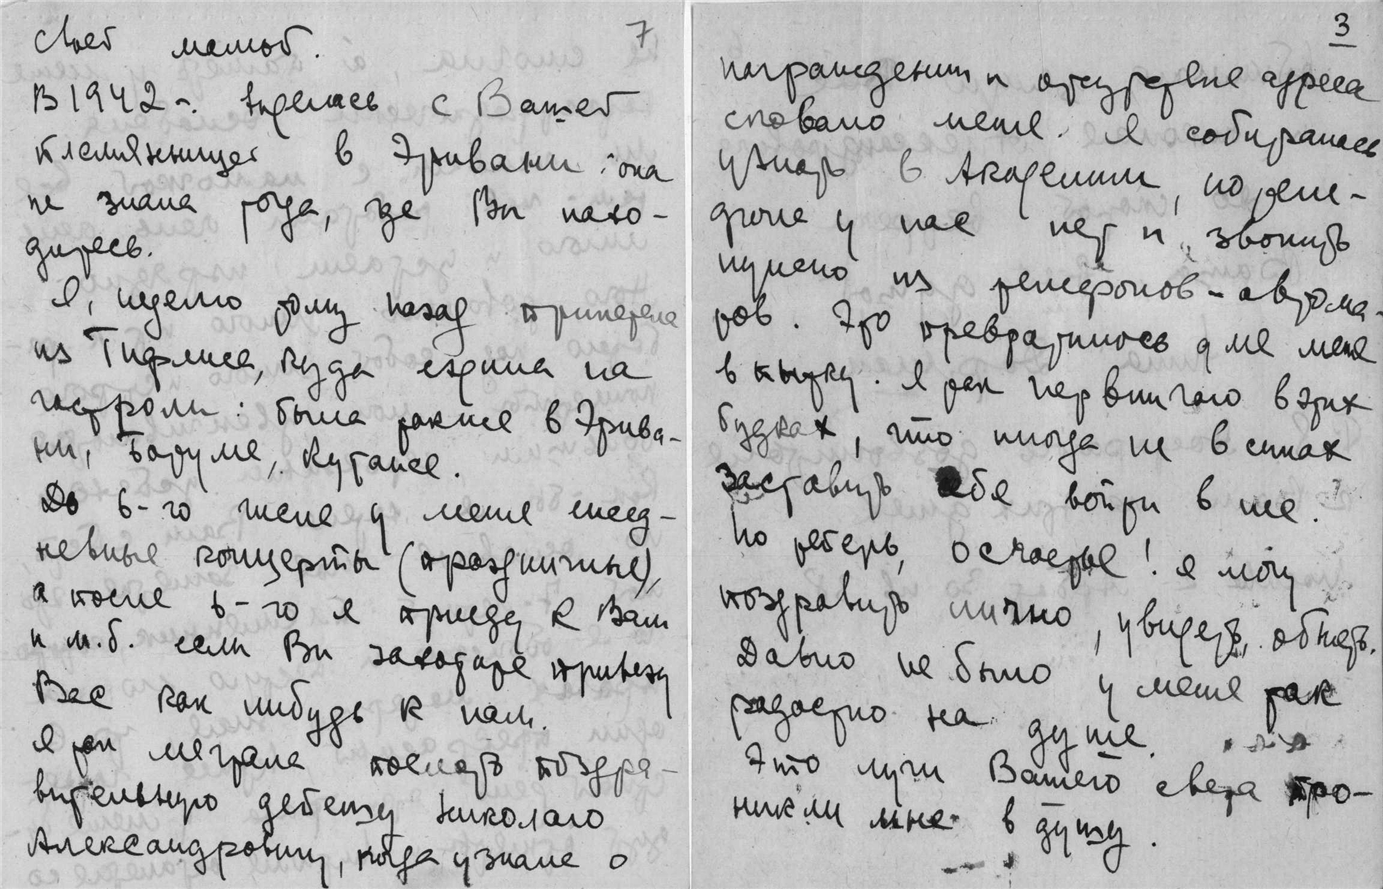 7
своей мамой.
В 1942 г. виделась с Вашей
племянницей в Эривани: она
не знала тогда, где Вы нахо-
дитесь.
Я, неделю тому назад прилетела
из Тифлиса, куда ездила на
гастроли: была также в Эрива-
ни, Батуме, Кутаисе.
До 6-го мая у меня ежед-
невные концерты (праздничные),
а после 6-го я приеду к Вам
и м.б. если Вы захотите привезу
Вас как нибудь к нам.
Я так мечтала послать поздра-
вительную депешу Николаю
Александровичу, когда узнала о
3
награждении и отсутствие адреса
сковало меня. Я собиралась
узнать в Академии, но теле-
фона у нас нет и звонить
нужно из телефонов-автома-
тов. Это превратилось для меня
в пытку. Я так нервничаю в этих
будках, что иногда не в силах
заставить себя войти в нее.
Но теперь, о счастье! я могу
поздравить лично, увидеть, обнять.
Давно не было у меня так
радостно на душе.
Это лучи Вашего света про-
никли мне в душу.